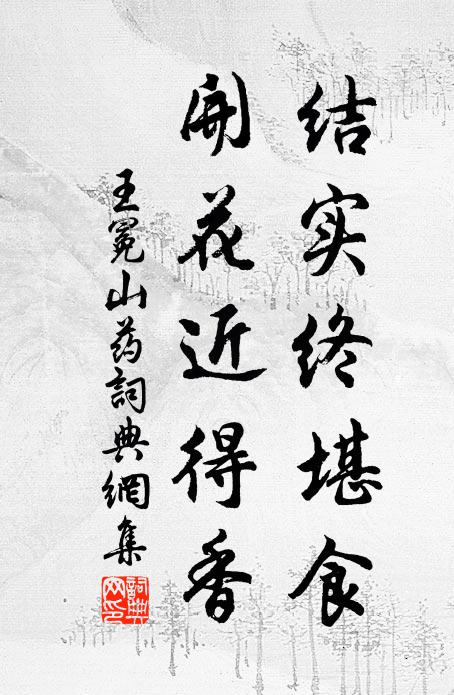 结实终堪食
開花近得香
王冕山药詞典網集
詞典
网印